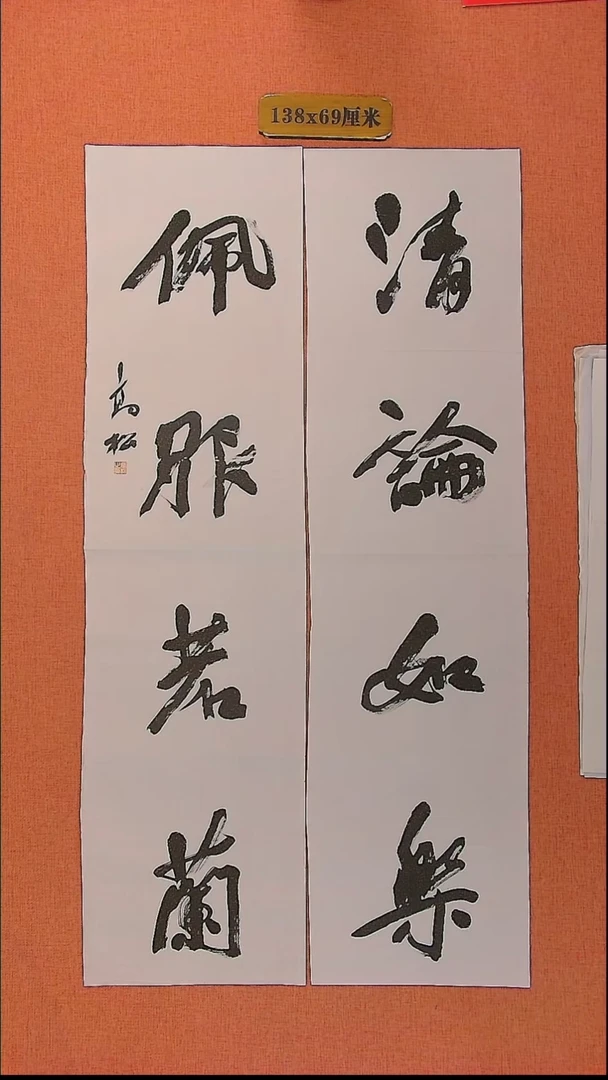 138x69厘米
清論如樂
佩服若蘭
高松